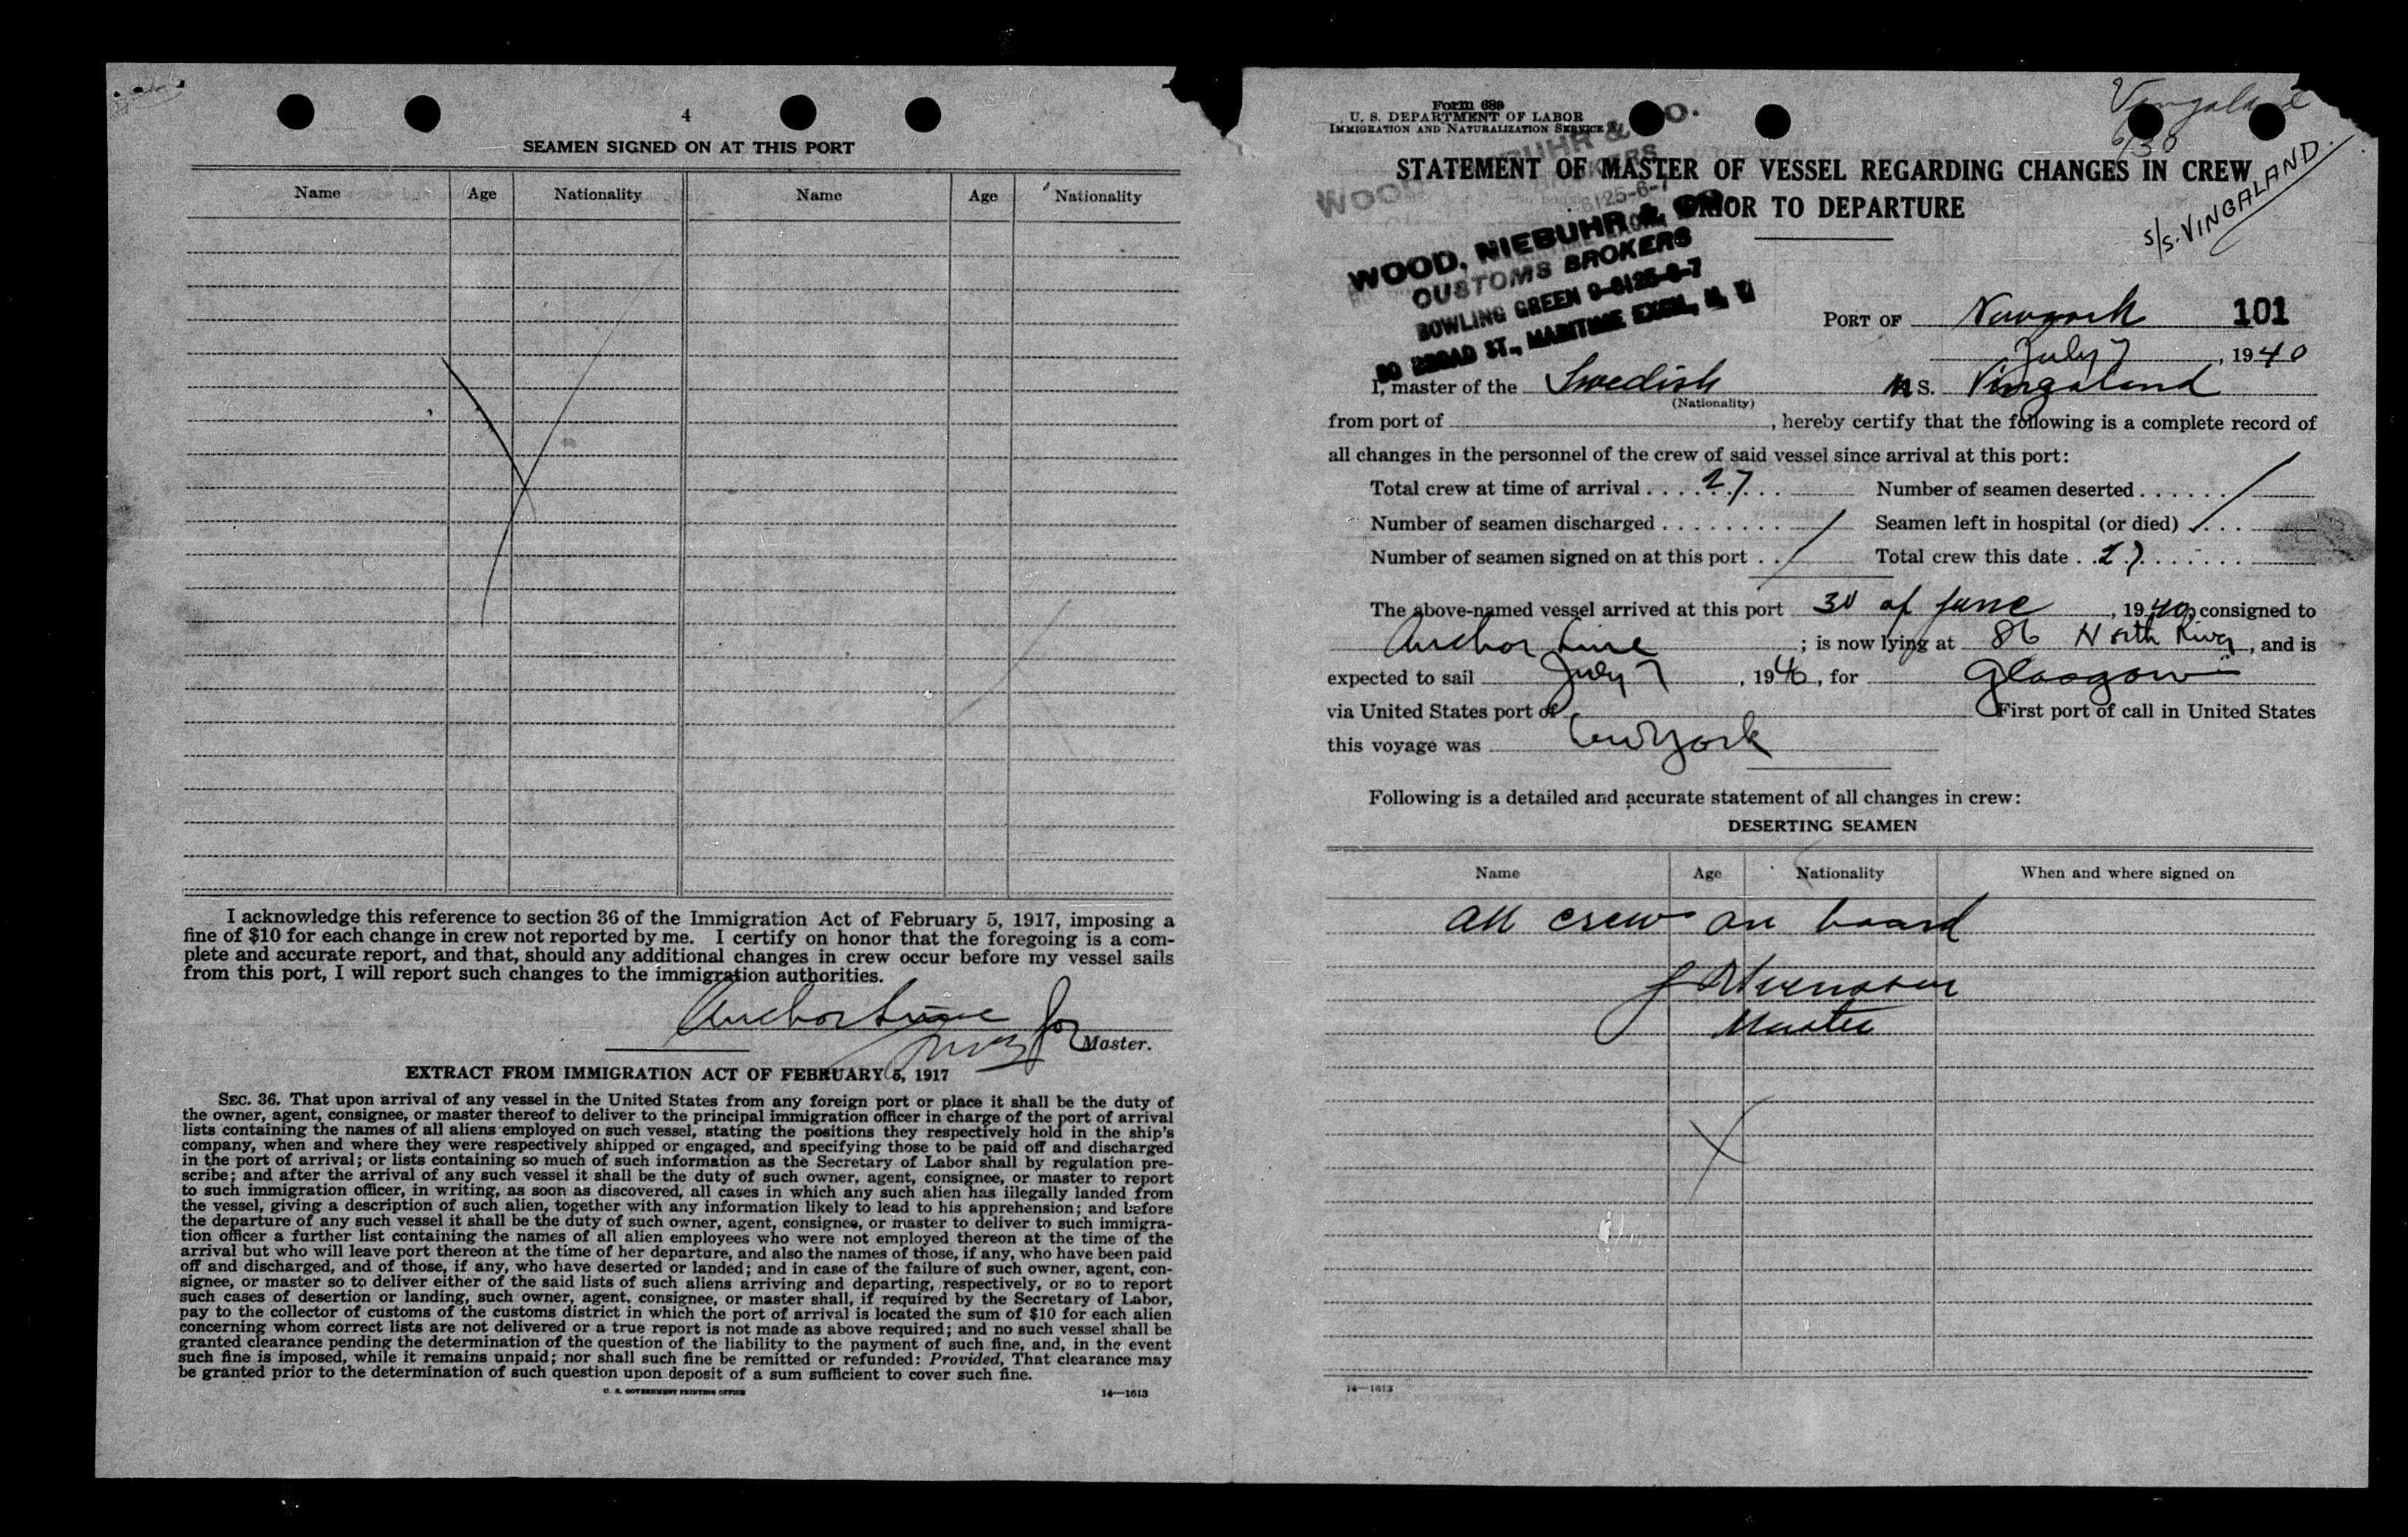 4
SEAMEN SIGNED ON AT THIS PORT
Name Age Nationality Name Age Nationality
I acknowledge this reference to section 36 of the Immigration Act of February 5, 1917, imposing a
fine of $10 for each change in crew not reported by me. I certify on honor that the foregoing is a com-
plete and accurate report, and that, should any additional changes in crew occur before my vessel sails
from this port, I will report such changes to the immigration authorities.
Anchor Line
for Master.
EXTRACT FROM IMMIGRATION ACT OF FEBRUARY 5, 1917
SEC. 36. That upon arrival of any vessel in the United States from any foreign port or place it shall be the duty of
the owner, agent, consignee, or master thereof to deliver to the principal immigration officer in charge of the port of arrival
lists containing the names of all aliens employed on such vessel, stating the positions they respectively hold in the ship's
company, when and where they were respectively shipped or engaged, and specifying those to be paid off and discharged
in the port of arrival; or lists containing so much of such information as the Secretary of Labor shall by regulation pre-
scribe; and after the arrival of any such vessel it shall be the duty of such owner, agent, consignee, or master to report
to such immigration officer, in writing, as soon as discovered, all cases in which any such alien has illegally landed from
the vessel, giving a description of such alien, together with any information likely to lead to his apprehension; and before
the departure of any such vessel it shall be the duty of such owner, agent, consignee, or master to deliver to such immigra-
tion officer a further list containing the names of all alien employees who were not employed thereon at the time of the
arrival but who will leave port thereon at the time of her departure, and also the names of those, if any, who have been paid
off and discharged, and of those, if any, who have deserted or landed; and in case of the failure of such owner, agent, con-
signee, or master so to deliver either of the said lists of such aliens arriving and departing, respectively, or so to report
such cases of desertion or landing, such owner, agent, consignee, or master shall, if required by the Secretary of Labor,
pay to the collector of customs of the customs district in which the port of arrival is located the sum of $10 for each alien
concerning whom correct lists are not delivered or a true report is not made as above required; and no such vessel shall be
granted clearance pending the determination of the question of the liability to the payment of such fine, and, in the event
such fine is imposed, while it remains unpaid; nor shall such fine be remitted or refunded: Provided, That clearance may
be granted prior to the determination of such question upon deposit of a sum sufficient to cover such fine.
U. S. GOVERNMENT PRINTING OFFICE 14—1613
Form 689
U. S. DEPARTMENT OF LABOR
IMMIGRATION AND NATURALIZATION SERVICE
Vingaland
6/30
S/S. VINGALAND.
STATEMENT OF MASTER OF VESSEL REGARDING CHANGES IN CREW
PRIOR TO DEPARTURE
WOOD, NIEBUHR & CO.
CUSTOMS BROKERS
BOWLING GREEN 9-6125-6-7
80 BROAD ST., MARITIME EXCH., N. Y.
PORT OF Newyork 101
July 7, 1940
I, master of the Swedish M S. Vingaland
(Nationality)
from port of , hereby certify that the following is a complete record of
all changes in the personnel of the crew of said vessel since arrival at this port:
Total crew at time of arrival 27 Number of seamen deserted /
Number of seamen discharged / Seamen left in hospital (or died) /
Number of seamen signed on at this port / Total crew this date 27
The above-named vessel arrived at this port 30 of june, 1940, consigned to
Anchor Line; is now lying at 86 North River, and is
expected to sail July 7, 1940, for Glasgow
via United States port of First port of call in United States
this voyage was New York
Following is a detailed and accurate statement of all changes in crew:
DESERTING SEAMEN
Name Age Nationality When and where signed on
all crew on board
Master
14—1613